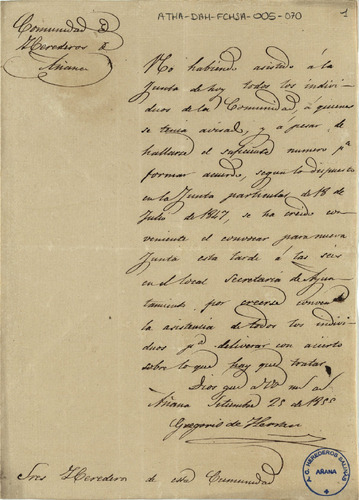 ATHA-DAH-FCHJA-005-070
1
Comunidad de
Herederos de
Añana
No habiendo asistido á la
Junta de hoy todos los indivi-
duos de la Comunidad, á quienes
se tenia avisado, y á pesar de
hallarse el suficiente numero pa
formar acuerdo, segun lo dispuesto
en la Junta particular de 18 de
Julio de 1847, se ha creido con-
veniente el convocar para nueva
Junta esta tarde á las seis
en el local Secretaria de Ayun-
tamiento por creerse conveniente
la asistencia de todos los indivi-
duos pa deliverar con acierto
sobre lo que hay que tratar.
Dios gue a V. ms as
Añana Setiembre 25 de 1855
Gregorio de
Sres Herederos de esta Comunidad
A.C. HEREDEROS SALINAS
AÑANA